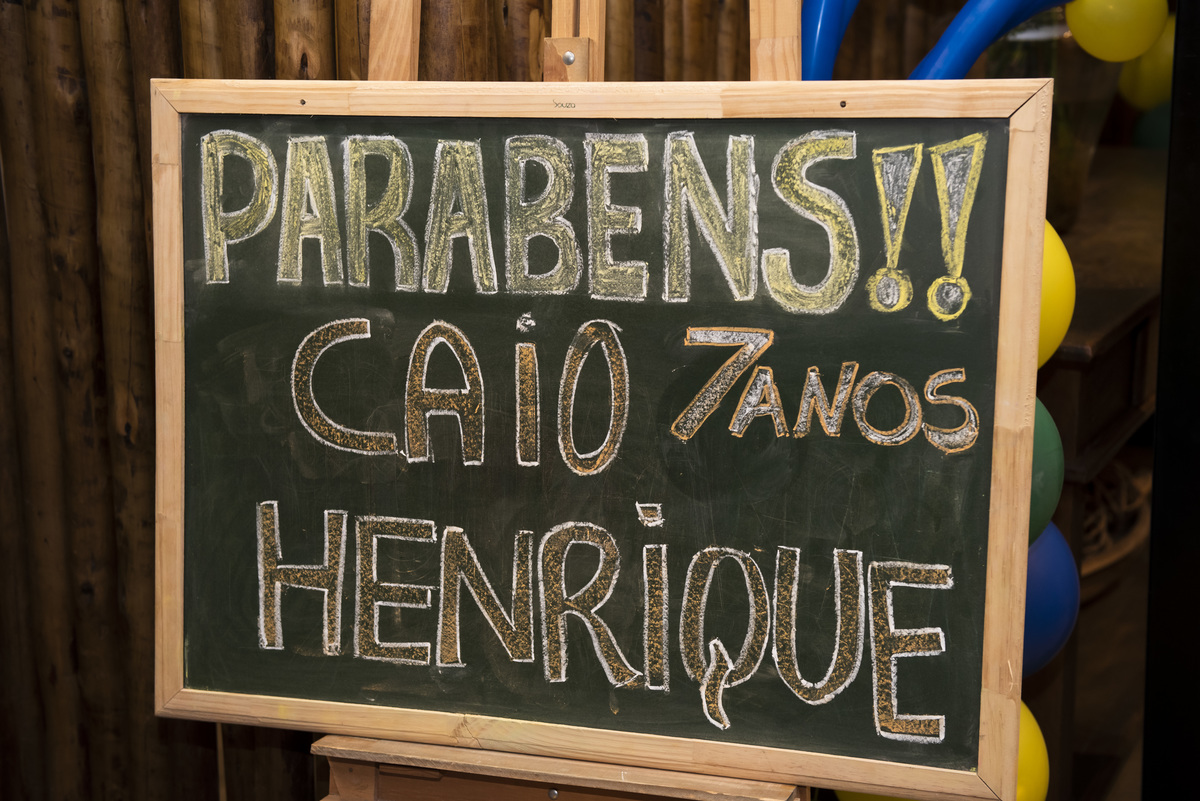 souza
PARABENS!!
CAiO 7ANOS
HENRiQUE